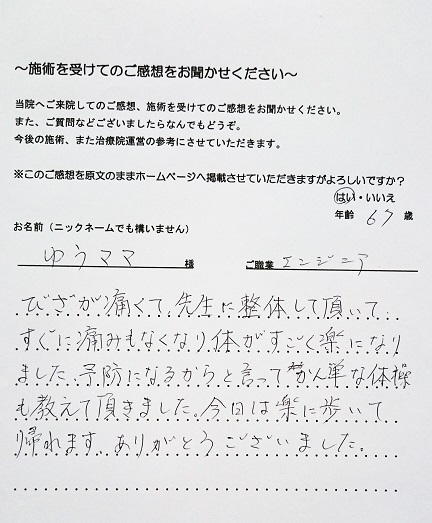 ～施術を受けてのご感想をお聞かせください～
当院へご来院してのご感想、施術を受けてのご感想をお聞かせください。
また、ご質問などございましたらなんでもどうぞ。
今後の施術、また治療院運営の参考にさせていただきます。
※このご感想を原文のままホームページへ掲載させていただきますがよろしいですか？
はい・いいえ
年齢 67 歳
お名前（ニックネームでも構いません）
ゆうママ 様 ご職業 エンジニア
ひざが痛くて、先生に整体して頂いて
すぐに痛みもなくなり体がすごく楽になり
ました、予防になるからと言ってかん単な体操
も教えて頂きました。今日は楽に歩いて
帰れます、ありがとうございました。